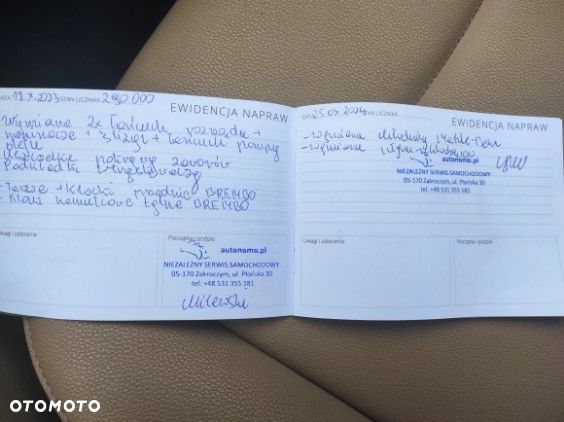 DATA 19.X.2023 STAN LICZNIKA 290.000
EWIDENCJA NAPRAW
Wymiana 2x łańcuch rozrządu +
napinacze + ślizgi + łańcuch pompy
oleju
Uszczelka pokrywy zaworów
Podkładki
- Tarcze + klocki przednie BREMBO
- Klocki hamulcowe tylne BREMBO
Uwagi i zalecenia
Pieczątka i podpis
autonomo.pl
NIEZALEŻNY SERWIS SAMOCHODOWY
05-170 Zakroczym, ul. Płońska 30
tel. +48 531 355 181
DATA 25.03.2024 STAN LICZNIKA
EWIDENCJA NAPRAW
- wymiana chłodnicy
- wymiana
autonomo.pl
NIEZALEŻNY SERWIS SAMOCHODOWY
05-170 Zakroczym, ul. Płońska 30
tel. +48 531 355 181
Uwagi i zalecenia
Pieczątka i podpis
OTOMOTO